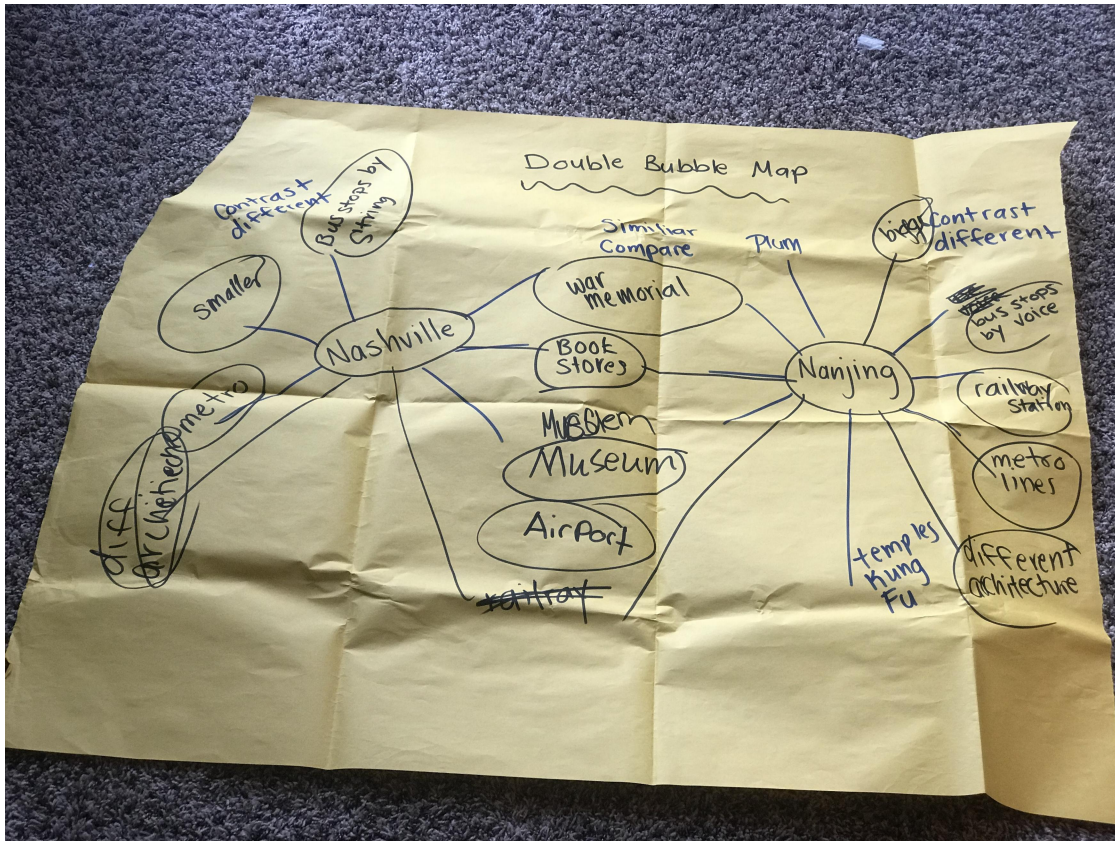 Double Bubble Map
Contrast
different
Bus stops by
String
smaller
Nashville
metro
diff
Similiar
Compare
war
memorial
Book
Stores
Museum
Airport
Plum
bigger
Contrast
different
Nanjing
bus stops
by voice
railway
Station
metro
lines
different
architecture
temples
Kung
Fu